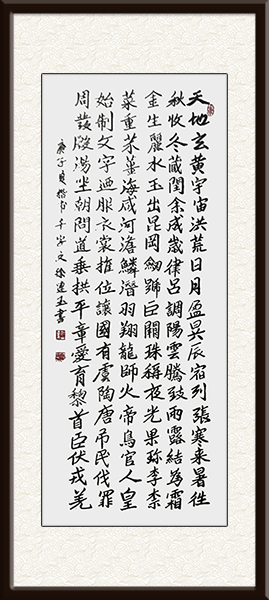 天地玄黃宇宙洪荒日月盈昃辰宿列張寒来暑徃
秋收冬藏閏余成歲律呂調陽雲騰致雨露結為霜
金生麗水玉出昆岡劒號巨闕珠稱夜光果珎李柰
菜重芥薑海咸河澹鱗潛羽翔龍師火帝鳥官人皇
始制文字迺服衣裳推位讓國有虞陶唐吊民伐罪
周發殷湯坐朝問道垂拱平章愛育黎首臣伏戎羌
庚子夏 千字文 玉書